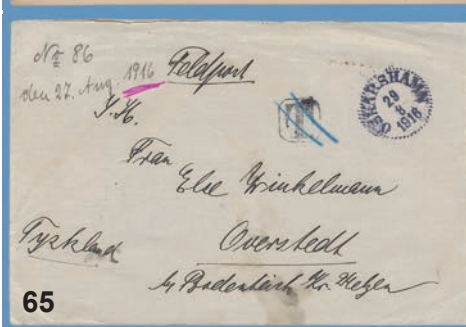 No 86
den 27. Aug. 1916
Feldpost
I. H.
T
OSKARSHAMN
29
8
1916
Frau
Else Winkelmann
Tyskland
Overstedt
by Bodenteich Kr. Uelzen
65